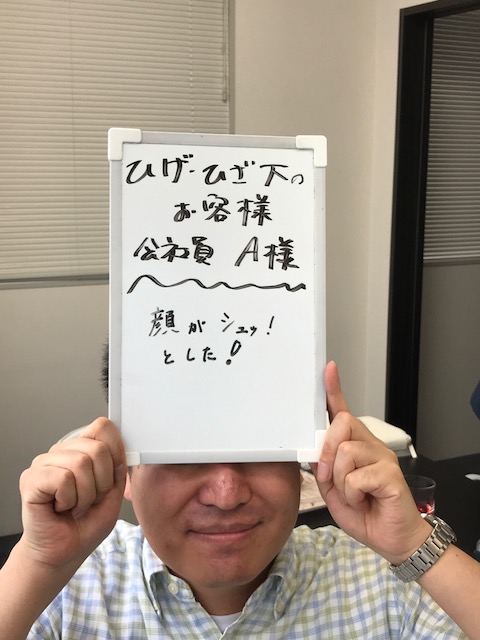 ひげ・ひざ下の
お客様
会社員 A様
顔がシュッ!
とした!